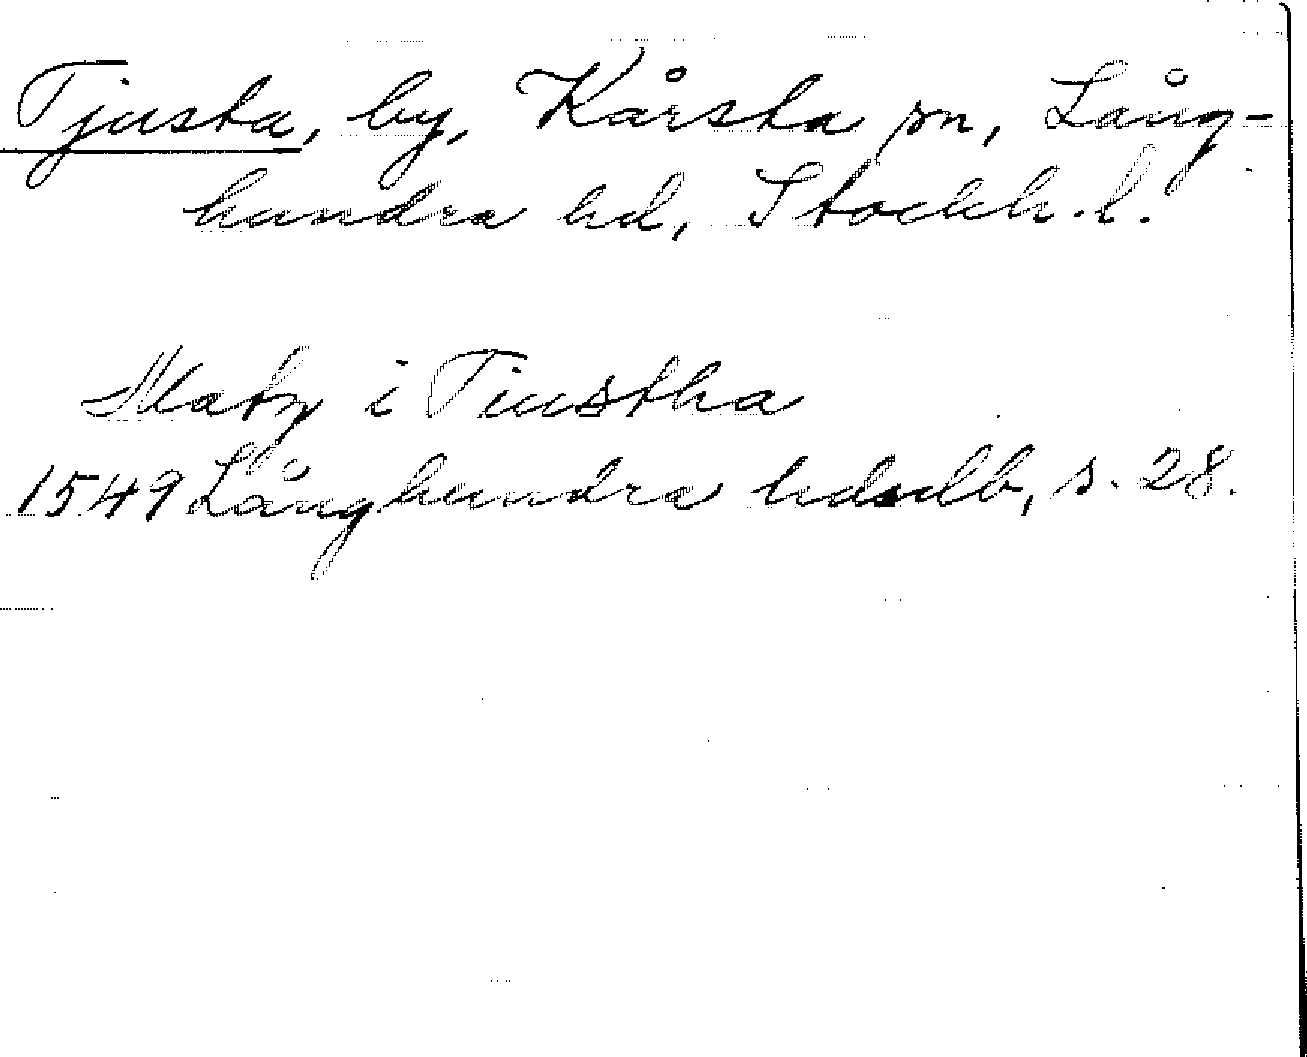 Tjusta, by, Kårsta sn, Lång-
hundra hd, Stockh. l.
Matz i Tiustha
1549 Långhundra hdsdb, s. 28.